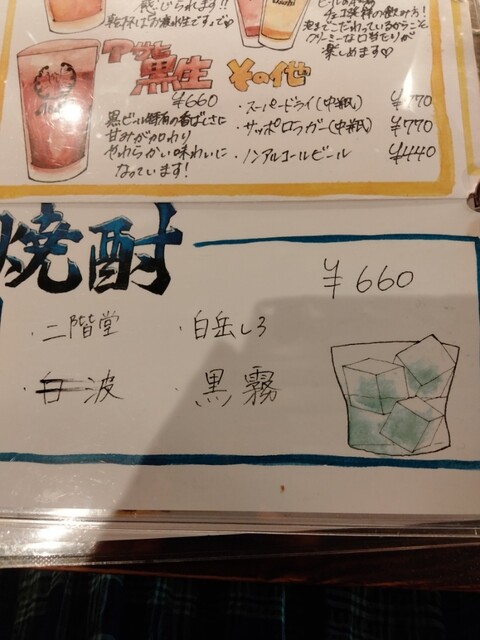 感じられます!!
乾杯はお疲れ生ですって♡
クリーミーな口当たりが
楽しめます♡
アサヒ
黒生
¥660
黒ビール特有の香ばしさに
甘みが加わり
やわらかい味わいに
なっています!
その他
・スーパードライ(中瓶) ¥770
・サッポロラガー(中瓶) ¥770
・ノンアルコールビール ¥440
焼酎
¥660
・二階堂 ・白岳しろ
・白波 ・黒霧